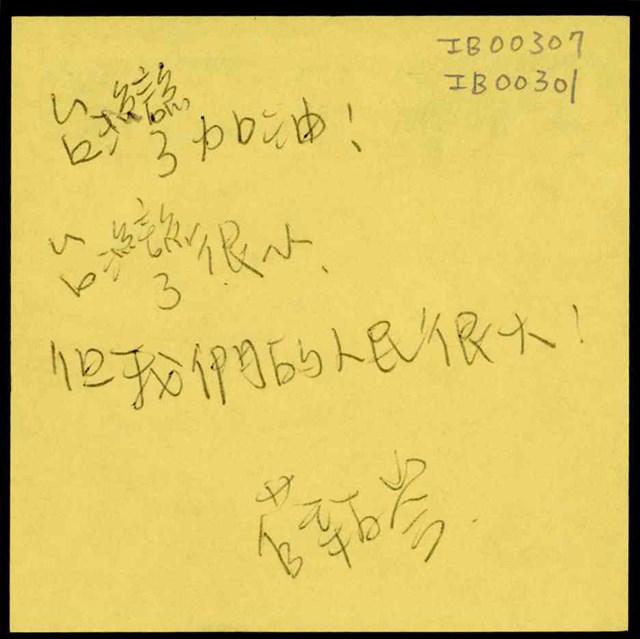 IB00307
IB00301
台灣加油!
台灣很小、
但我們的人民很大!